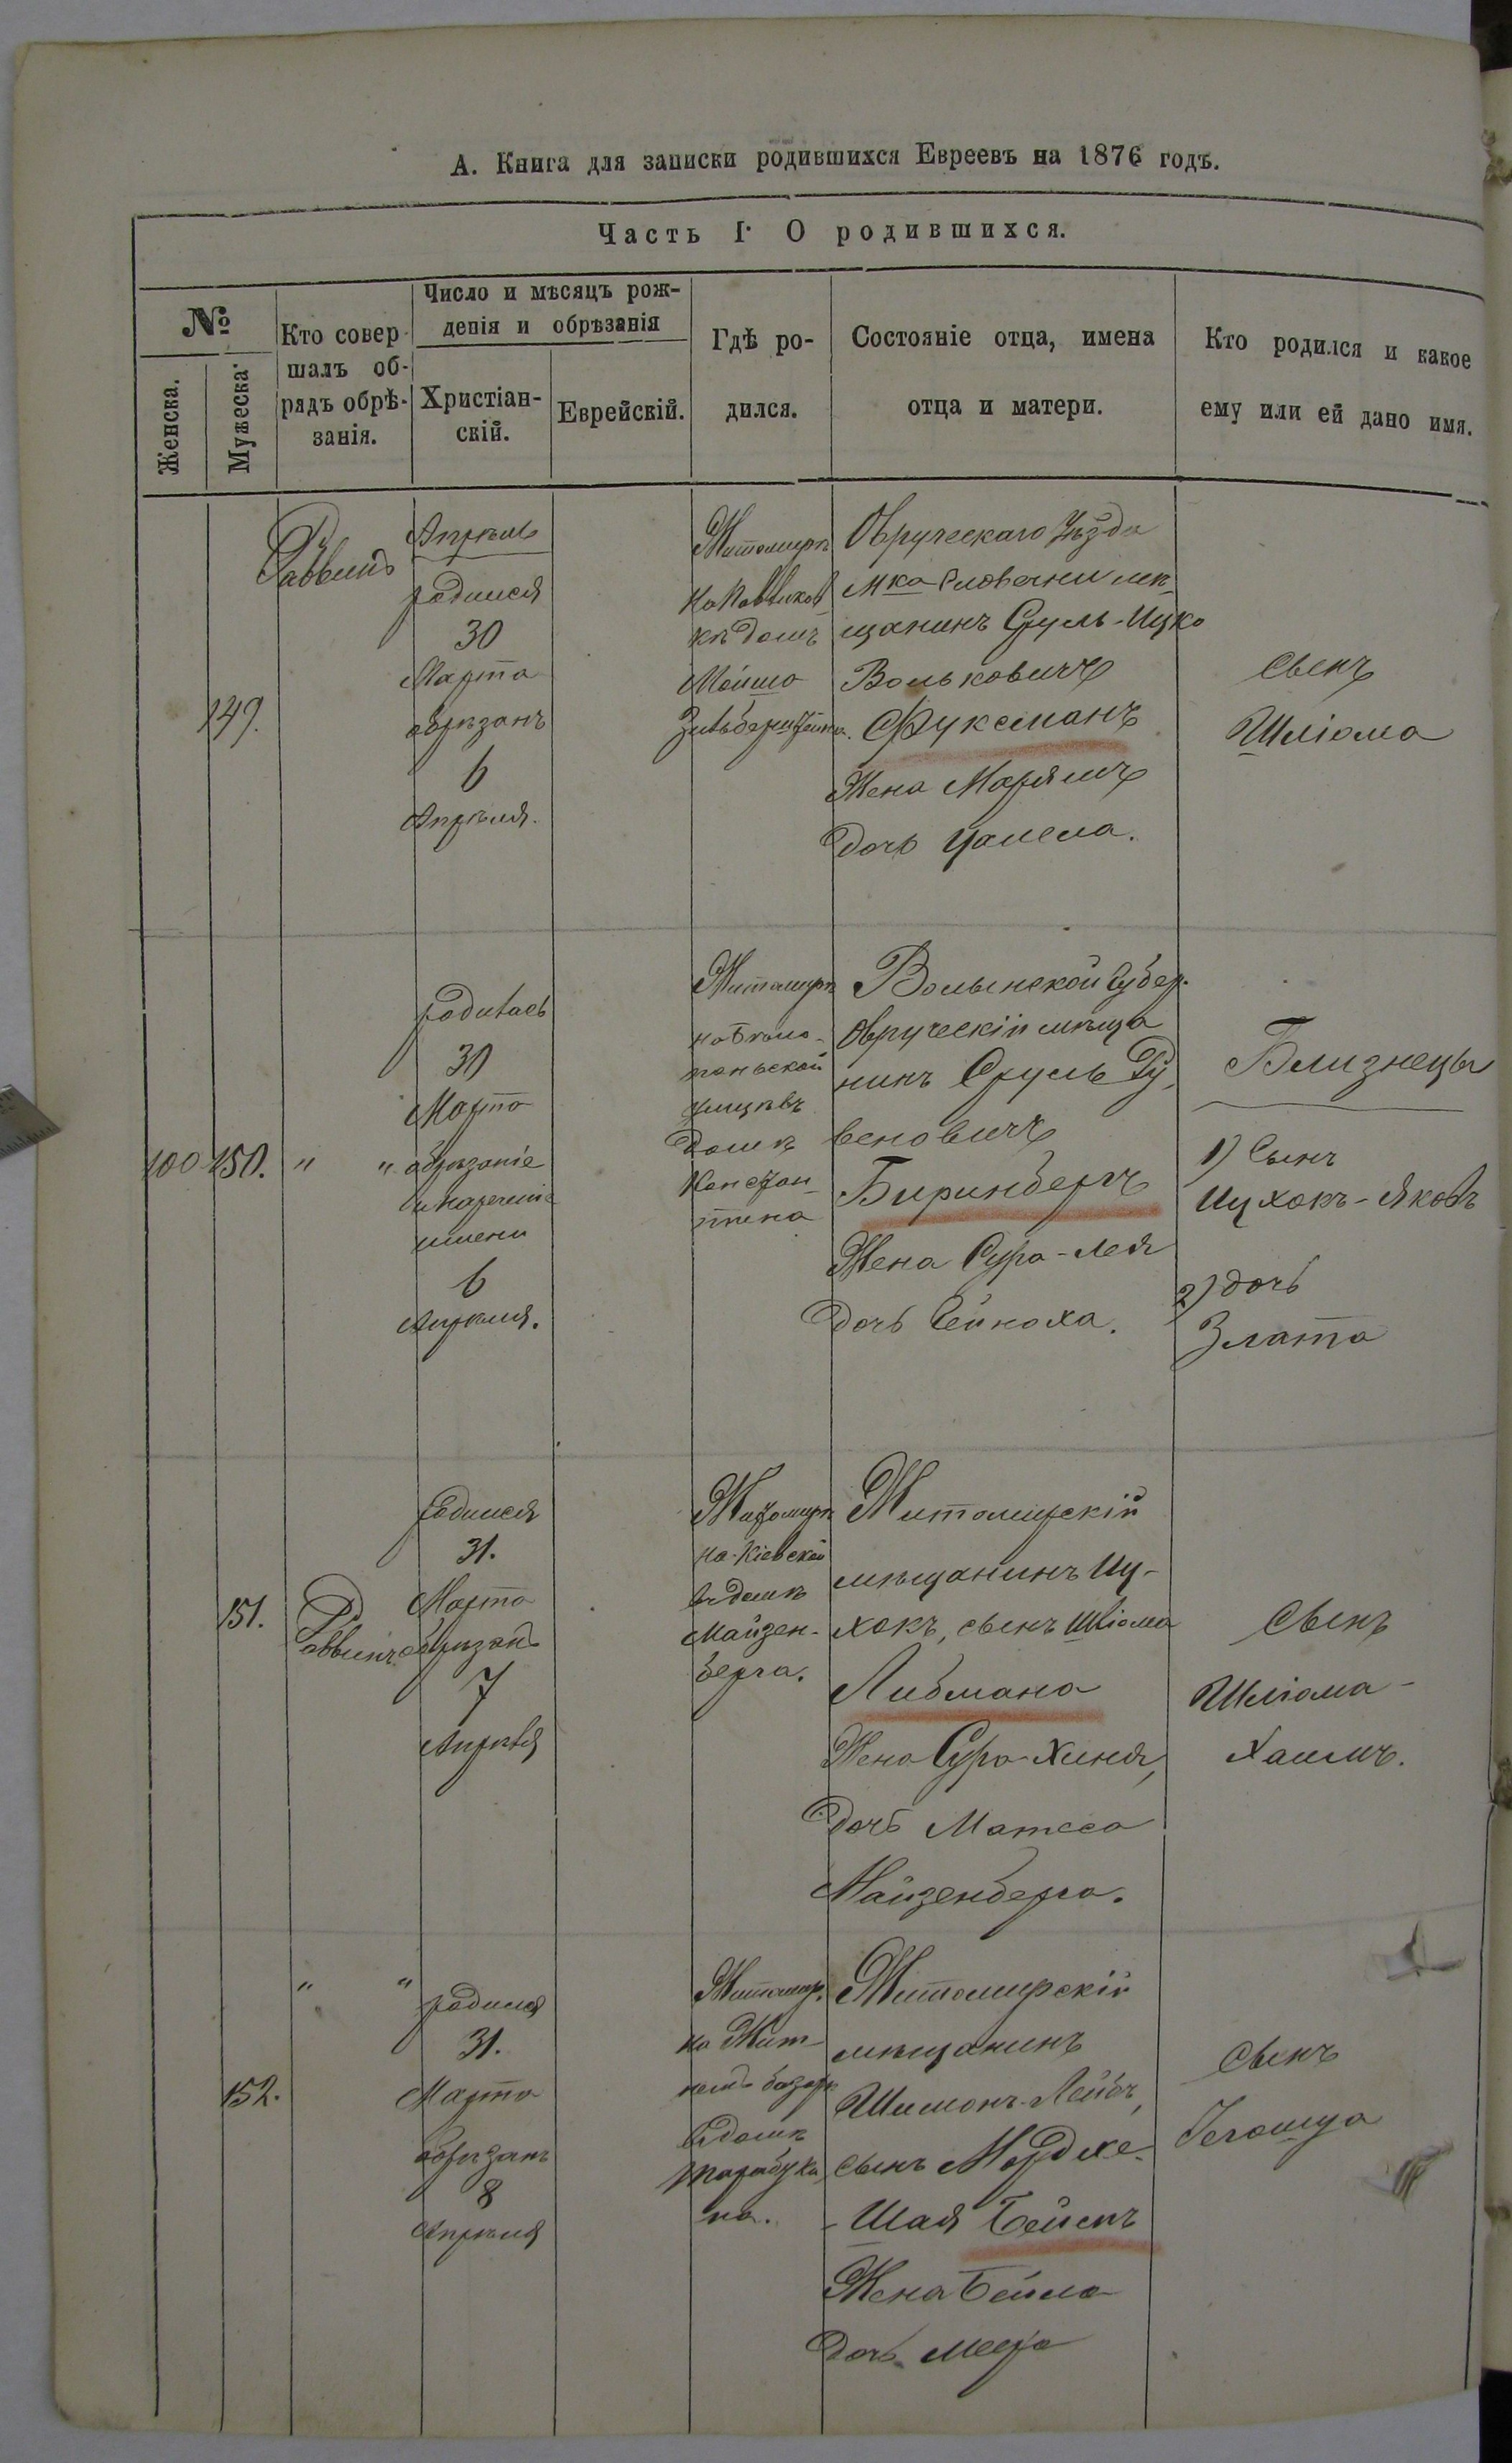 А. Книга для записки родившихся Евреевъ на 1876 годъ.
Часть I. О родившихся.
№
Женска.
Мужеска.
Кто совер-
шалъ об-
рядъ обрѣ-
занія.
Число и мѣсяцъ рож-
денія и обрѣзанія
Христіан-
скій.
Еврейскій.
Гдѣ ро-
дился.
Состояніе отца, имена
отца и матери.
Кто родился и какое
ему или ей дано имя.
149.
Раввинъ
Апрѣль
родился
30
Марта
обрѣзанъ
6
Апрѣля.
Житомирѣ
домѣ
Мойшо
Овруческаго Уѣзда
Мка Словечни мѣ-
щанинъ Сруль-Ицко
Вольковичъ
Фуксманъ
Жена Марямъ
Дочь
Сынъ
Шліома
100
150.
" "
родилась
30
Марта
обрѣзаніе
и нареченіе
имени
6
Апрѣля.
Житомирѣ
улицѣ въ
домѣ
Волынской Губер.
Овруческій мѣща
нинъ Сруль Ру-
веновичъ
Биринбергъ
Жена Сура-Лея
Дочь Гейноха.
Близнецы
1) Сынъ
Ицхокъ-Яковъ
2) дочь
Злата
151.
Раввинъ
родился
31.
Марта
обрѣзанъ
7
Апрѣля
Житомирѣ
на Кіевской
въ домѣ
Майзен-
берга.
Житомирскій
мѣщанинъ Иц-
хокъ, сынъ Шліома
Либмана
Жена Сура-Хиня,
Дочь Матеса
Майзенберга.
Сынъ
Шліома-
Хаимъ.
152.
" "
родился
31.
Марта
обрѣзанъ
8
Апрѣля
Житомир.
на Жит-
немъ базарѣ
въ домѣ
на.
Житомирскій
мѣщанинъ
Шимонъ-Лейбъ,
сынъ Мордхе-
-Шая
Жена Бейла
Дочь Меера
Сынъ
Іегошуа